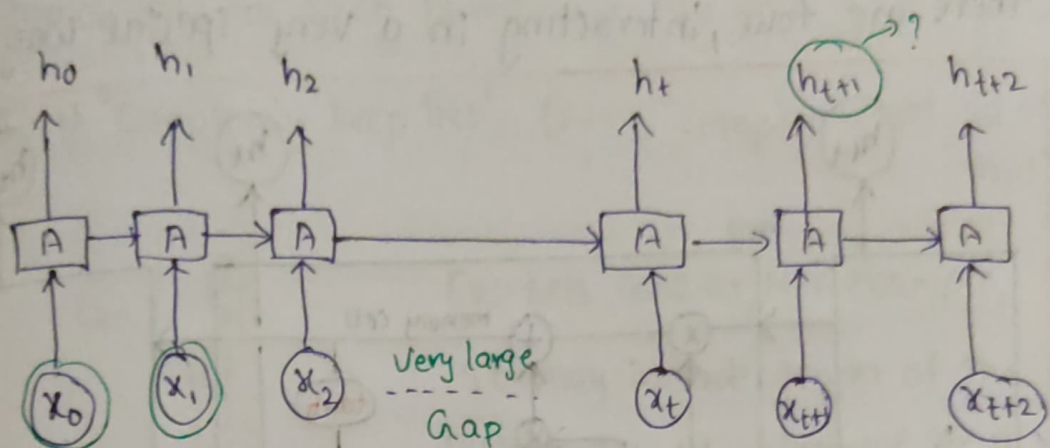 h0 h1 h2 ht ht+1 → ? ht+2
A A A A A A
x0 x1 x2 very large xt xt+1 xt+2
Gap